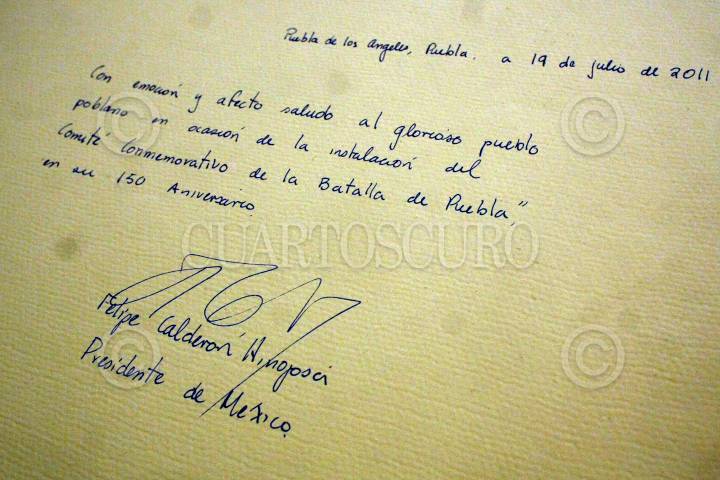 Puebla de los Angeles, Puebla. a 19 de julio de 2011
Con emoción y afecto saludo al glorioso pueblo
poblano en ocasión de la instalación del
Comité Conmemorativo de la Batalla de Puebla,"
en su 150 Aniversario.
CUARTOSCURO
Felipe Calderón Hinojosa
Presidente de México.